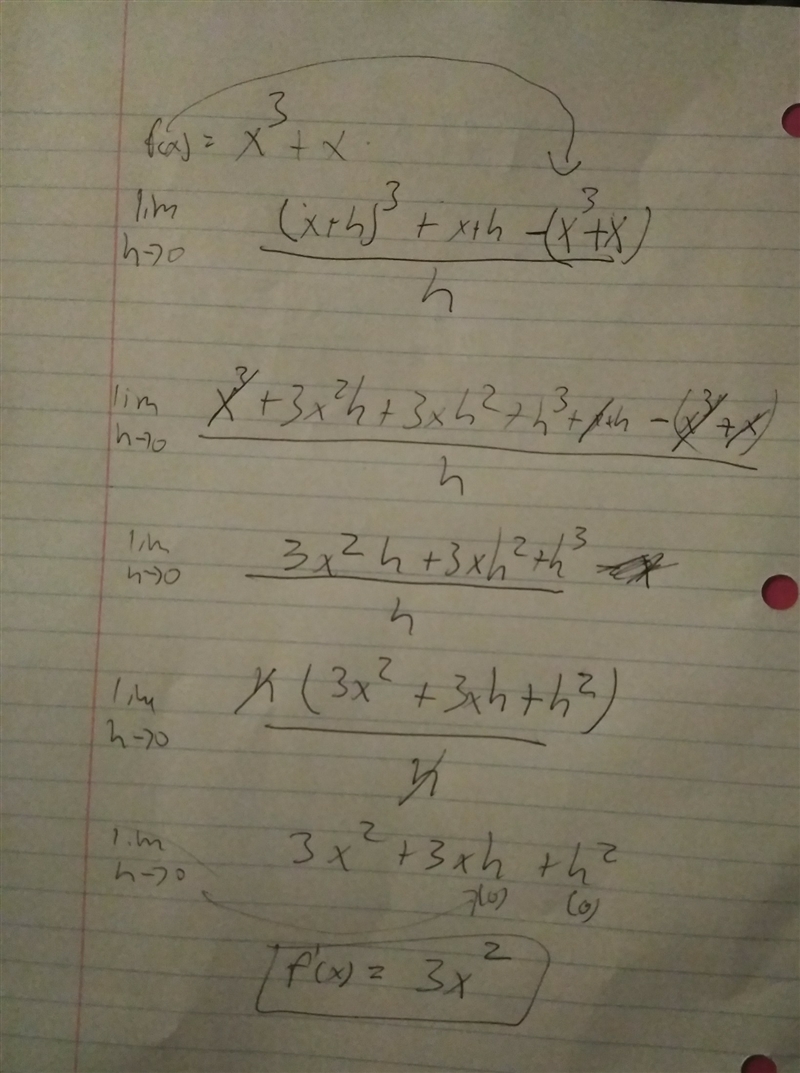 f(x) = x³ + x
lim h→0 ((x+h)³ + x+h - (x³+x)) / h
lim h→0 (x³ + 3x²h + 3xh² + h³ + x+h - (x³ + x)) / h
lim h→0 (3x²h + 3xh² + h³) / h
lim h→0 h(3x² + 3xh + h²) / h
lim h→0 3x² + 3xh + h²
(0) (0)
f'(x) = 3x²